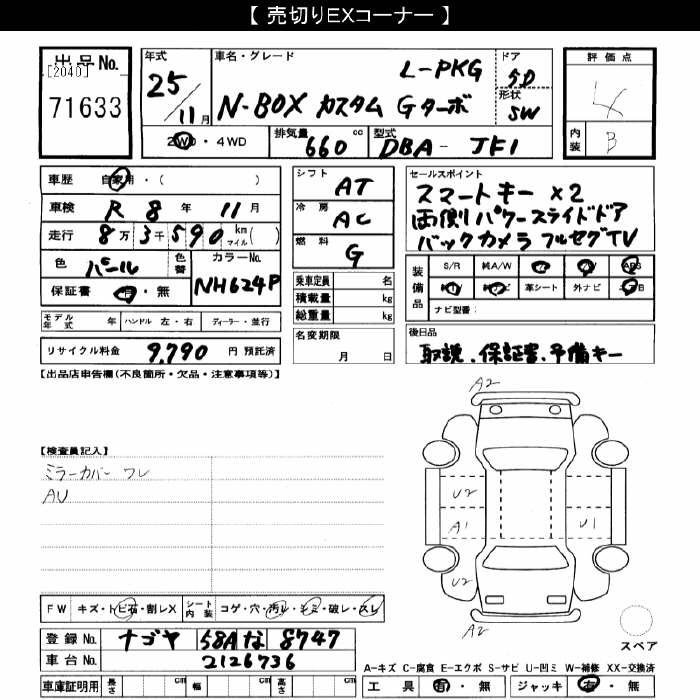 【 売切りEXコーナー 】
出品No.
[2040]
71633
年式
25/11月
車名・グレード
L-PKG
N-BOX カスタム Gターボ
ドア
5D
形状
SW
2WD・4WD
排気量 660 cc
型式 DBA-JF1
評価点
4
内装 B
車歴 自家用・( )
車検 R 8 年 11 月
走行 8万3千590 km マイル( )
色 パール
色替
カラーNo.
NH624P
保証書 有・無
シフト AT
冷房 AC
燃料 G
乗車定員 名
積載量 kg
総重量 kg
セールスポイント
スマートキー ×2
両側パワースライドドア
バックカメラ フルセグTV
装備品
S/R 純A/W ABS
革シート 外ナビ
ナビ型番:
モデル年式 年 ハンドル 左・右 ディーラー・並行
名変期限
月 日
リサイクル料金 9,790 円 預託済
後日品
取説、保証書、予備キー
【出品店申告欄(不良箇所・欠品・注意事項等)】
【検査員記入】
ミラーカバー ワレ
AU
A2
U2
A1
U1
U2
A2
スペア
FW キズ・トビ石・割レX
シート内装 コゲ・穴・汚レ・シミ・破レ・スレ
登録No. ナゴヤ 58A な 8747
車台No. 2126736
車庫証明用 長さ cm 幅 cm 高さ cm
A-キズ C-腐食 E-エクボ S-サビ U-凹ミ W-補修 XX-交換済
工具 有・無 ジャッキ 有・無